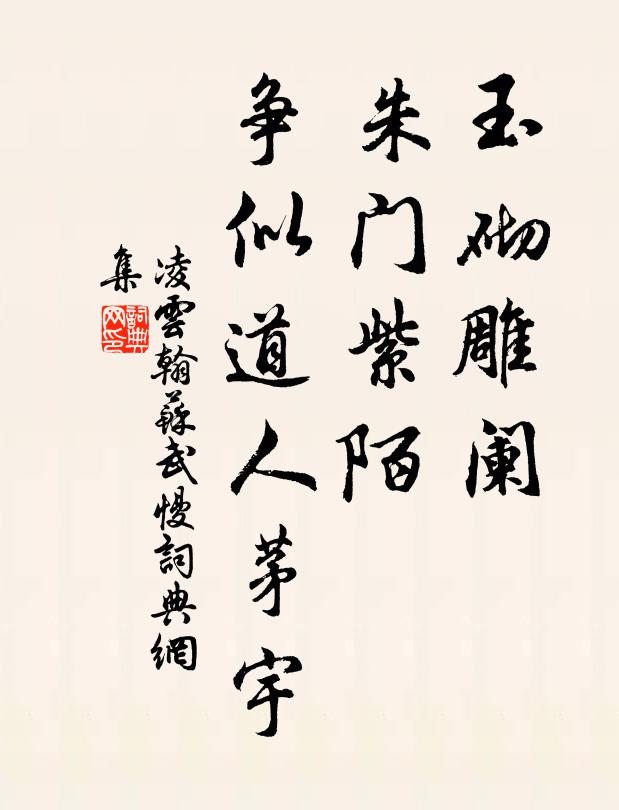 玉砌雕阑
朱门紫陌
争似道人茅宇
凌雲翰蘇武慢詞典網
集
詞典网印